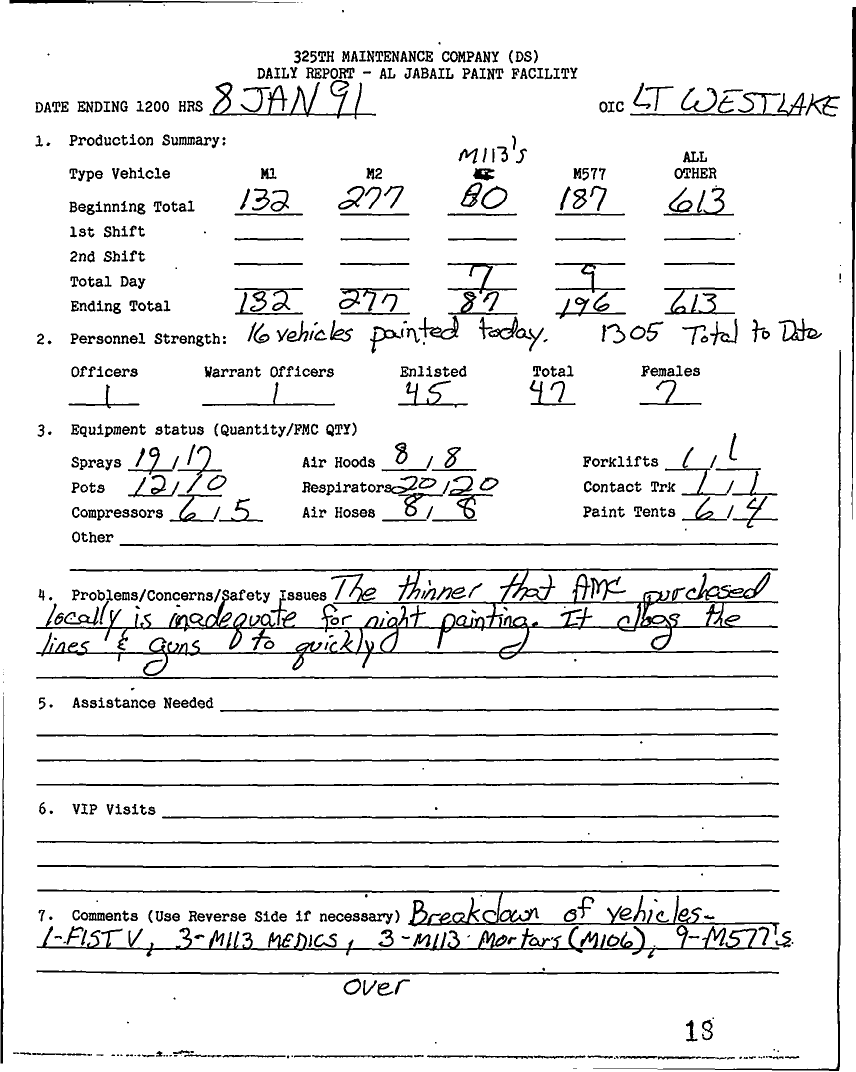 325TH MAINTENANCE COMPANY (DS)
DAILY REPORT - AL JABAIL PAINT FACILITY
DATE ENDING 1200 HRS 8 JAN 91 OIC LT WESTLAKE
1. Production Summary:
M113's
Type Vehicle M1 M2 M577 ALL OTHER
Beginning Total 132 277 80 187 613
1st Shift
2nd Shift
Total Day 7 9
Ending Total 132 277 87 196 613
2. Personnel Strength: 16 vehicles painted today. 1305 Total to Date
Officers Warrant Officers Enlisted Total Females
1 1 45 47 7
3. Equipment status (Quantity/FMC QTY)
Sprays 19/17 Air Hoods 8/8 Forklifts 1/1
Pots 12/10 Respirators 20/20 Contact Trk 1/1
Compressors 6/5 Air Hoses 8/8 Paint Tents 6/4
Other
4. Problems/Concerns/Safety Issues The thinner that AMC purchased
locally is inadequate for night painting. It clogs the
lines & guns to quickly
5. Assistance Needed
6. VIP Visits
7. Comments (Use Reverse Side if necessary) Breakdown of vehicles-
1-FIST V, 3-M113 MEDICS, 3-M113 Mortars (M106), 9-M577's
over
18